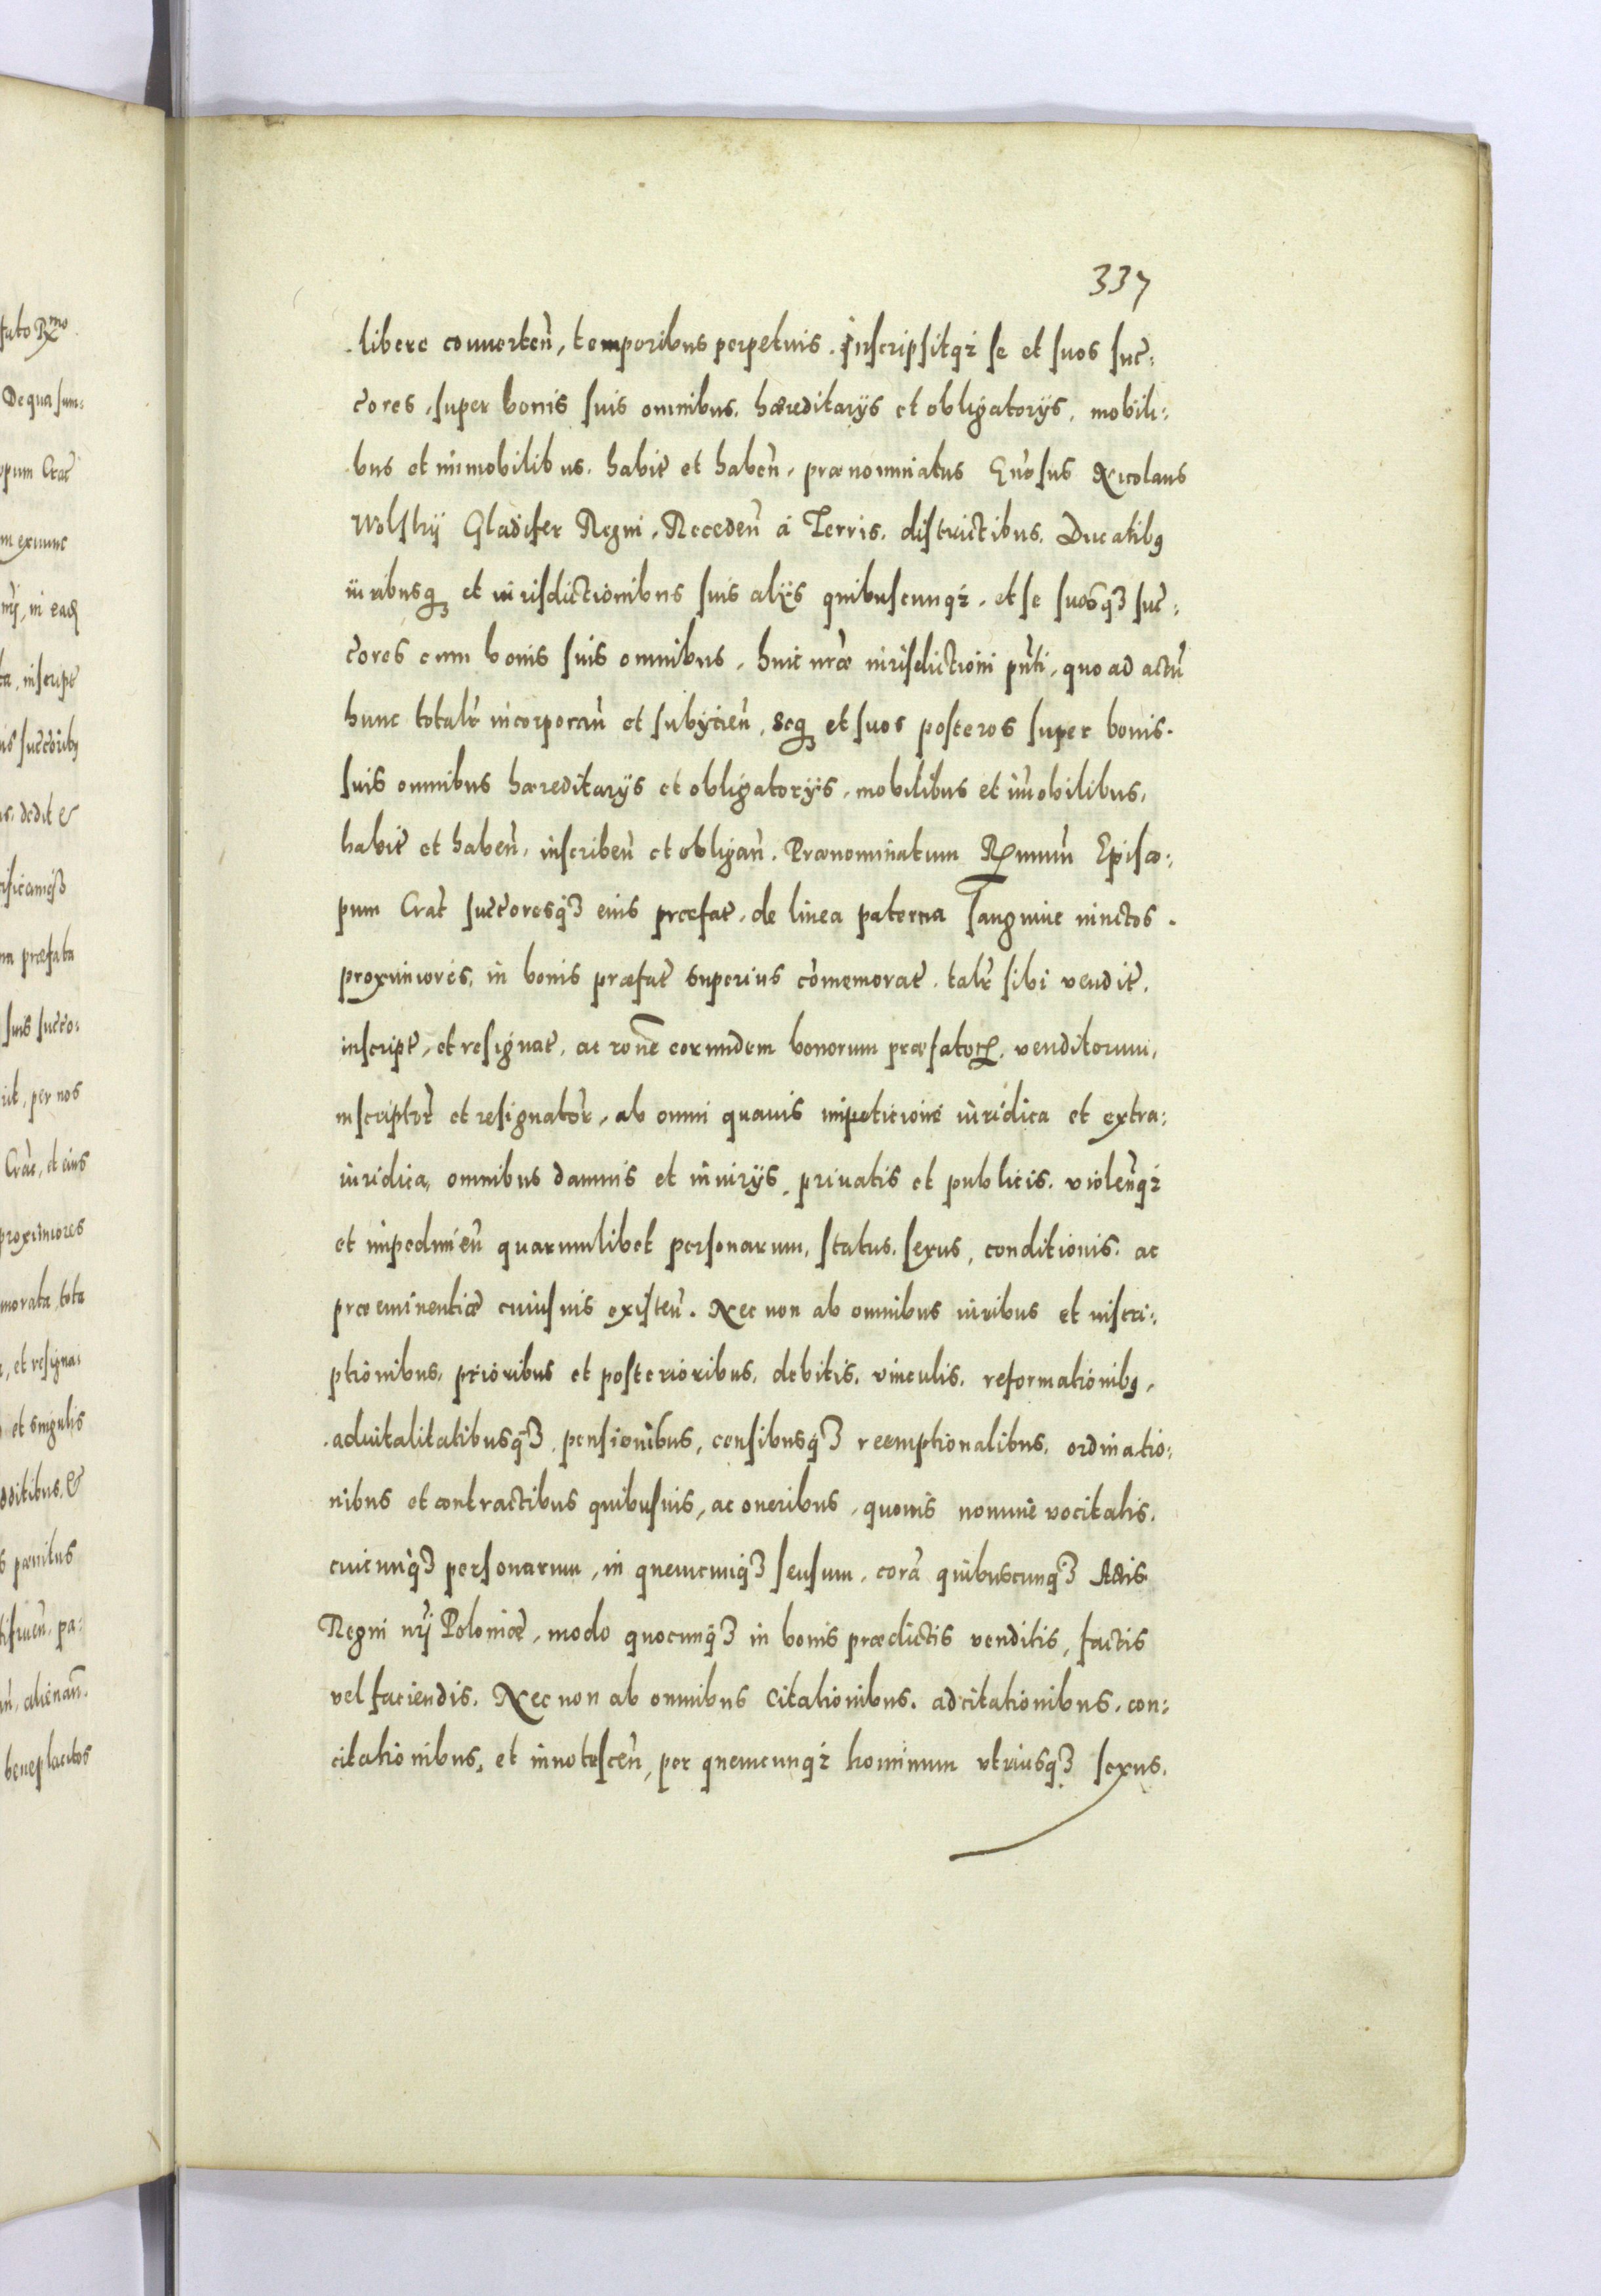 337
libere conuerteñ, temporibus perpetuis. Inscripsitq₃ se et suos suc:
c̃ores, super bonis suis omnibus, hæreditarÿs et obligatorÿs, mobili:
bus et immobilibus, habit̃ et habeñ, prænominatus G̃nosus Nicolaus
Wolskÿ Gladifer Regni, Recedeñ á Terris, districtibus, Ducatibꝫ
iuribusq₃ et iurisdictionibus suis alÿs quibuscunq₃, et se suosq₃ suc̃:
c̃ores cum bonis suis omnibus, huic nr̃æ iurisdictioni pñti, quo ad actũ
hunc totalr̃ incorporañ et subÿcieñ, Seq₃ et suos posteros super bonis
suis omnibus hæreditarÿs et obligatorÿs, mobilibus et im̃obilibus,
habit̃ et habeñ, inscribeñ et obligañ. Prænominatum Rx̃mum Episco:
pum Crac̃ succ̃oresq₃ eius præfat̃, de linea paterna Sanguine iunctos
proximiores, in bonis præfat̃ superius com̃emorat̃, talr̃ sibi vendit̃,
inscript̃, et resignat̃, ac ro̅n̅e eorundem bonorum præfatoꝝ, venditorum,
inscriptor̃ et resignator̃, ab omni quauis impeticione iuridica et extra:
iuridica, omnibus damnis et iniurÿs, priuatis et publicis, violeñq₃
et impedimeñ quarumlibet personarum, status, sexus, conditionis, ac
præeminentiæ cuiusuis existeñ. Nec non ab omnibus iuribus et inscri:
ptionibus, prioribus et posterioribus, debitis, vinculis, reformationibꝫ,
aduitalitatibusq₃, pensionibus, censibusq₃ reemptionalibus, ordinatio:
nibus et contractibus quibusuis, ac oneribus, quouis nomine vocitatis,
cuicunq₃ personarum, in quemcunq₃ sensum, corã quibuscunq₃ Actis
Regni nr̃j Poloniæ, modo quocunq₃ in bonis prædictis venditis, factis
vel faciendis. Nec non ab omnibus citationibus, adcitationibus, con:
citationibus, et innotesceñ, per quemcunq₃ hominum vtriusq₃ sexus,